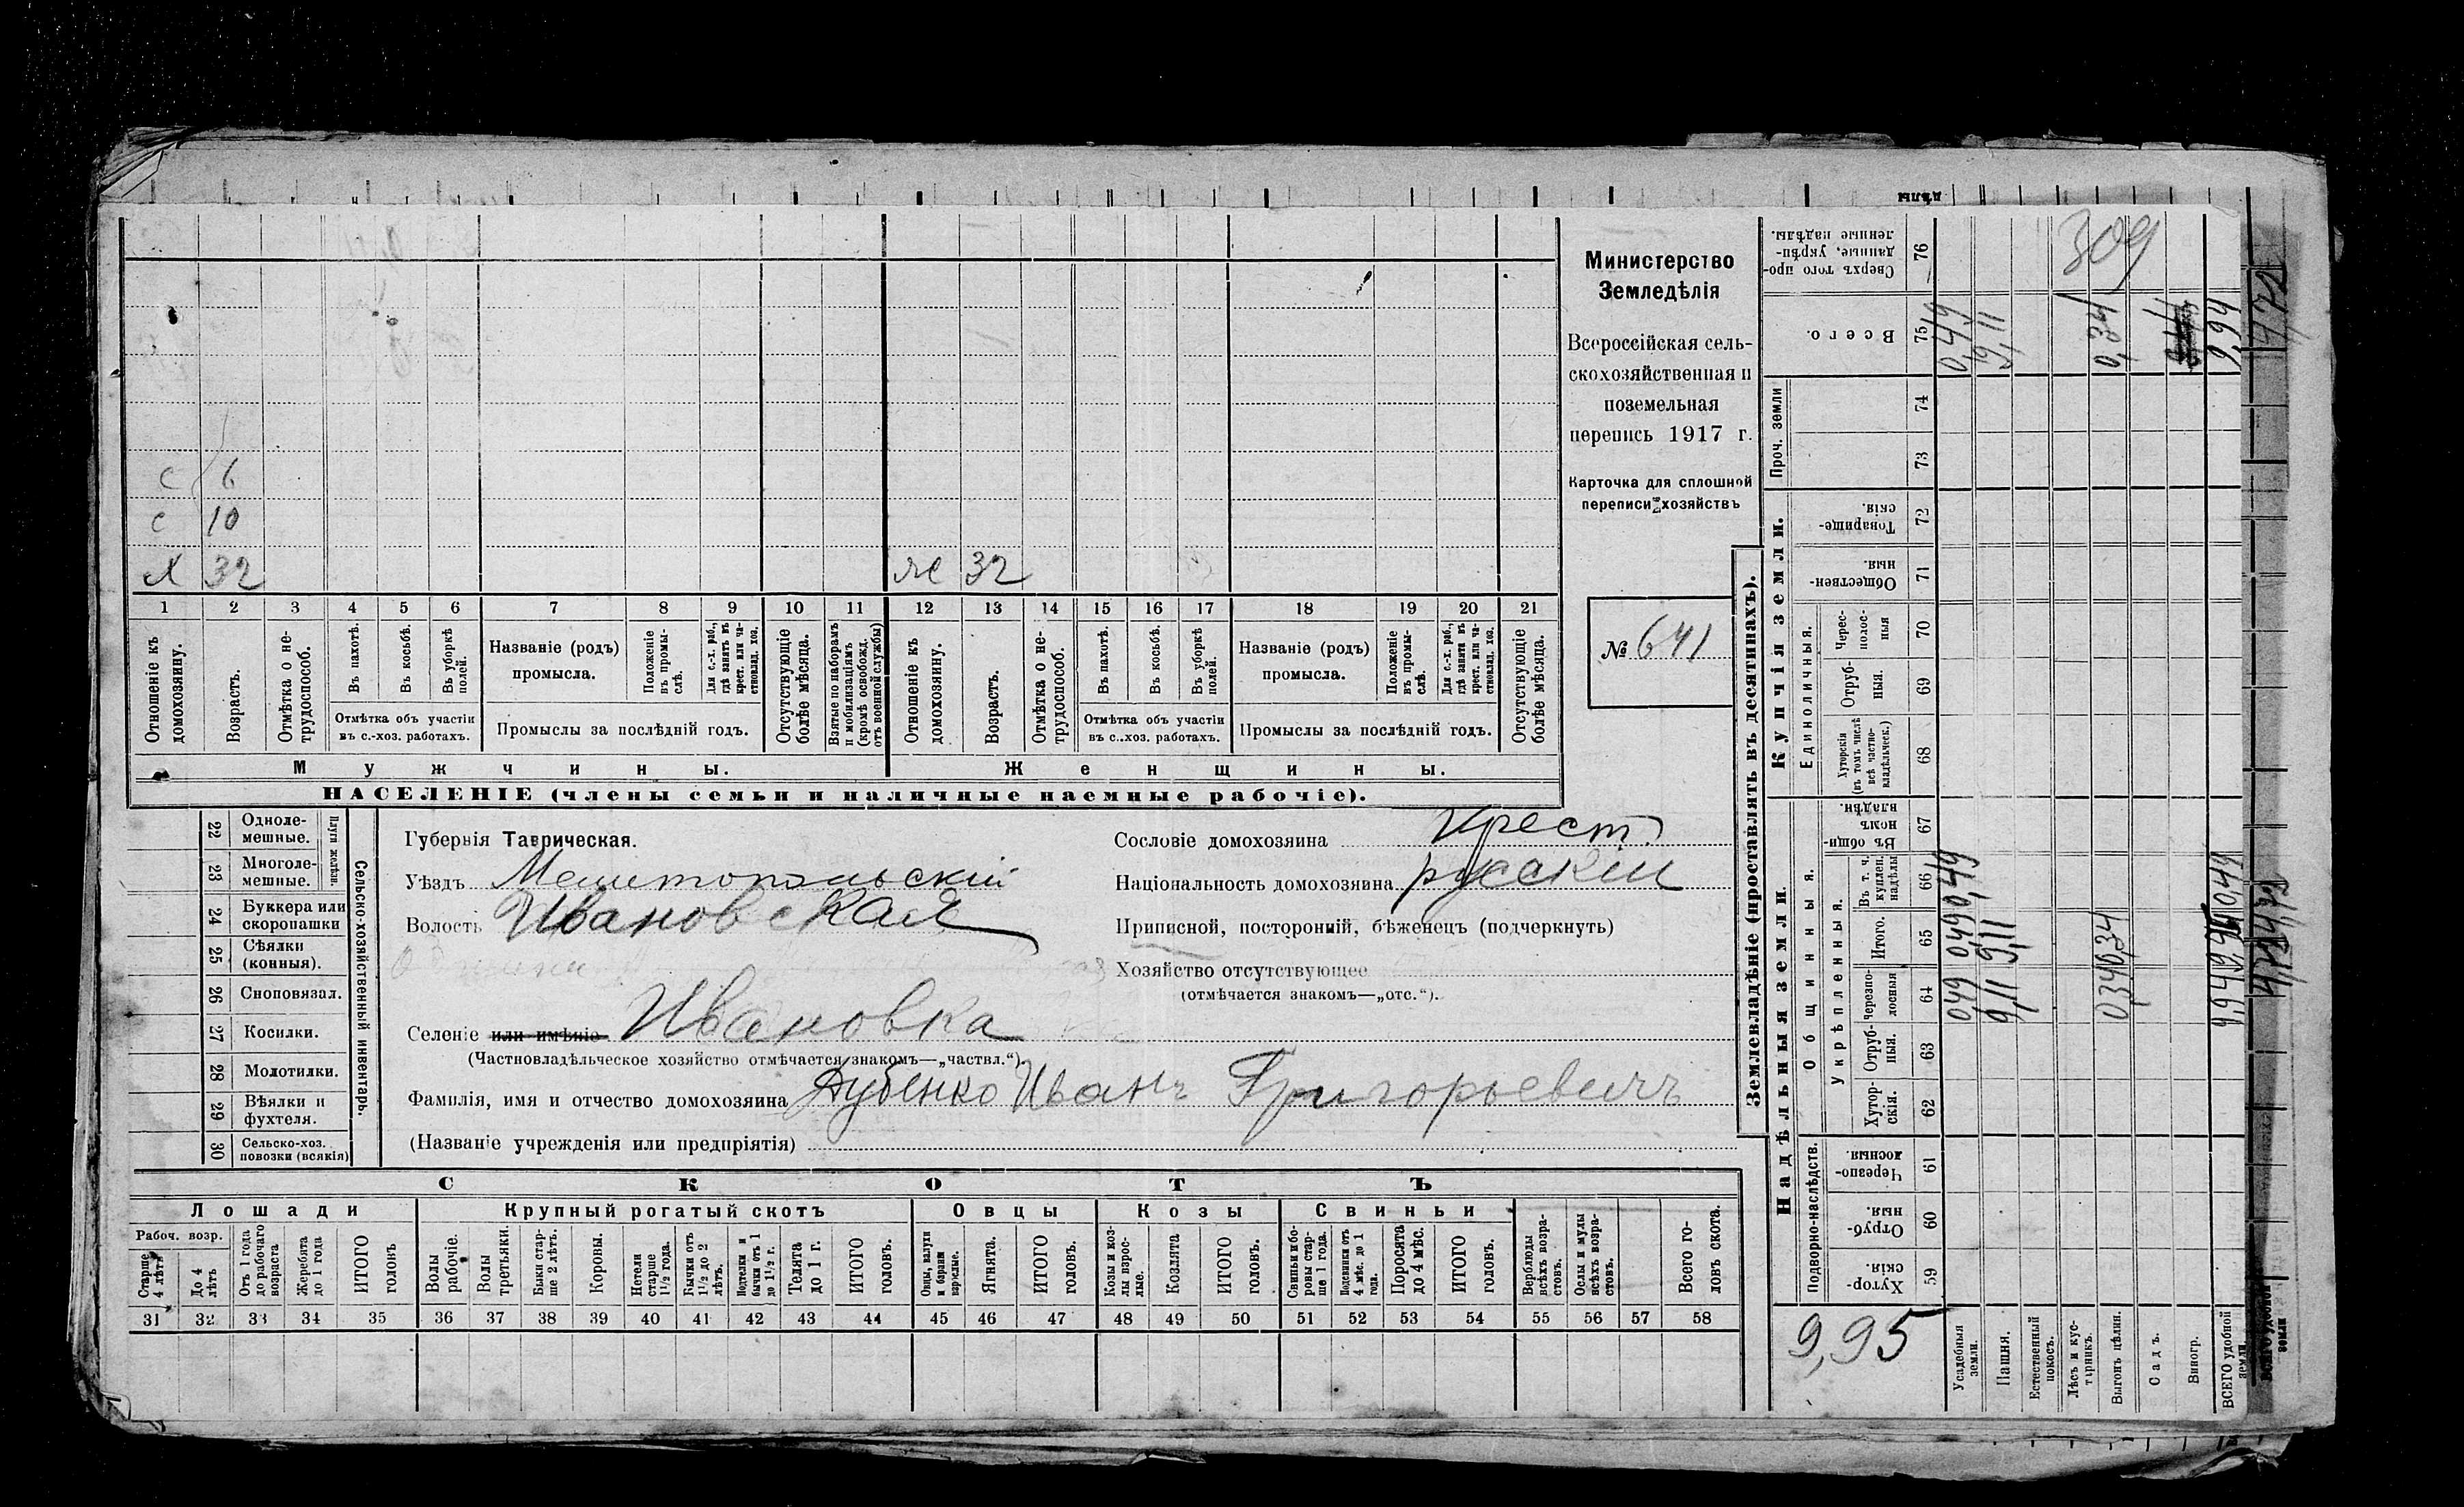 с 6
с 10
х 32 же 32
1 2 3 4 5 6 7 8 9 10 11 12 13 14 15 16 17 18 19 20 21
Отношеніе къ домохозяину.
Возрастъ.
Отмѣтка о нетрудоспособ.
Въ пахотѣ.
Въ косьбѣ.
Въ уборкѣ полей.
Отмѣтка объ участіи
въ с.-хоз. работахъ.
Названіе (родъ)
промысла.
Положеніе въ промыслѣ.
Для с.-х. раб., гдѣ занятъ въ крест. или частновлад. хоз.
Промыслы за послѣдній годъ.
Отсутствующіе болѣе мѣсяца.
Взятые по наборамъ и мобилизаціямъ (кромѣ освобожд. отъ военной службы)
Отношеніе къ домохозяину.
Возрастъ.
Отмѣтка о нетрудоспособ.
Въ пахотѣ.
Въ косьбѣ.
Въ уборкѣ полей.
Отмѣтка объ участіи
въ с.-хоз. работахъ.
Названіе (родъ)
промысла.
Положеніе въ промыслѣ.
Для с.-х. раб., гдѣ занята въ крест. или частновлад. хоз.
Промыслы за послѣдній годъ.
Отсутствующіе болѣе мѣсяца.
Мужчины. Женщины.
НАСЕЛЕНІЕ (члены семьи и наличные наемные рабочіе).
Министерство
Земледѣлія
Всероссійская сель-
скохозяйственная и
поземельная
перепись 1917 г.
Карточка для сплошной
переписи хозяйствъ
№ 641
22 Одноле-
мешные.
23 Многоле-
мешные.
Плуги желѣзн.
24 Буккера или
скоропашки
25 Сѣялки
(конныя).
26 Сноповязал.
27 Косилки.
28 Молотилки.
29 Вѣялки и
фухтеля.
30 Сельско-хоз.
повозки (всякія)
Сельско-хозяйственный инвентарь.
Губернія Таврическая.
Уѣздъ Мелитопольскій
Волость Ивановская
Селеніе или имѣніе Ивановка
(Частновладѣльческое хозяйство отмѣчается знакомъ—„частвл.“).
Фамилія, имя и отчество домохозяина Дубенко Иванъ Григорьевичъ
(Названіе учрежденія или предпріятія)
Сословіе домохозяина Крест.
Національность домохозяина русскій
Приписной, посторонній, бѣженец (подчеркнуть)
Хозяйство отсутствующее
(отмѣчается знакомъ—„отс.“).
СКОТЪ
Лошади Крупный рогатый скотъ Овцы Козы Свиньи
Рабоч. возр.
Старше 4 лѣтъ
До 4 лѣтъ
Отъ 1 года до рабочаго возраста
Жеребята до 1 года
ИТОГО головъ
Волы рабочіе.
Волы третьяки.
Быки старше 2 лѣтъ.
Коровы.
Нетели старше 1½ года.
Бычки отъ 1½ до 2 лѣтъ.
Подтелки и бычки отъ 1 до 1½ г.
Телята до 1 г.
ИТОГО головъ.
Овцы, валухи и бараны взрослые.
Ягнята.
ИТОГО головъ.
Козы и козлы взрослые.
Козлята
ИТОГО головъ.
Свиньи и боровы старше 1 года.
Подсвинки отъ 4 мѣс. до 1 года.
Поросята до 4 мѣс.
ИТОГО головъ.
Верблюды всѣхъ возрастовъ.
Ослы и мулы всѣхъ возрастовъ.
Всего головъ скота.
31 32 33 34 35 36 37 38 39 40 41 42 43 44 45 46 47 48 49 50 51 52 53 54 55 56 57 58
Землевладѣніе (проставлять въ десятинахъ).
Надѣльныя земли.
Купчія земли.
Проч. земли
Подворно-наслѣдств.
Общинныя.
Укрѣпленныя.
Единоличныя.
Хуторскія. 59
Отрубныя. 60
Черезполосныя. 61
Хуторскія. 62
Отрубныя. 63
Черезполосныя 64
Итого. 65
Въ т. ч. куплен. надѣлы 66
Въ общинномъ владѣн. 67
Хуторскія (въ томъ числѣ всѣ частновладѣльческ.) 68
Отрубныя. 69
Чересполосныя 70
Общественныя. 71
Товарищескія. 72
73
74
Всего. 75
Сверхъ того проданные, укрѣпленные надѣлы. 76
309
9,95
Усадебныя земли. 049 049 0,49 0,49
Пашня. 9,11 9,11 9,11
Естественный покосъ.
Лѣсъ и кустарникъ.
Выгонъ цѣлин. 0,34 0,34 0,34
Садъ.
Виногр.
ВСЕГО удобной земли. 9,94 9,94 0,49 9,94